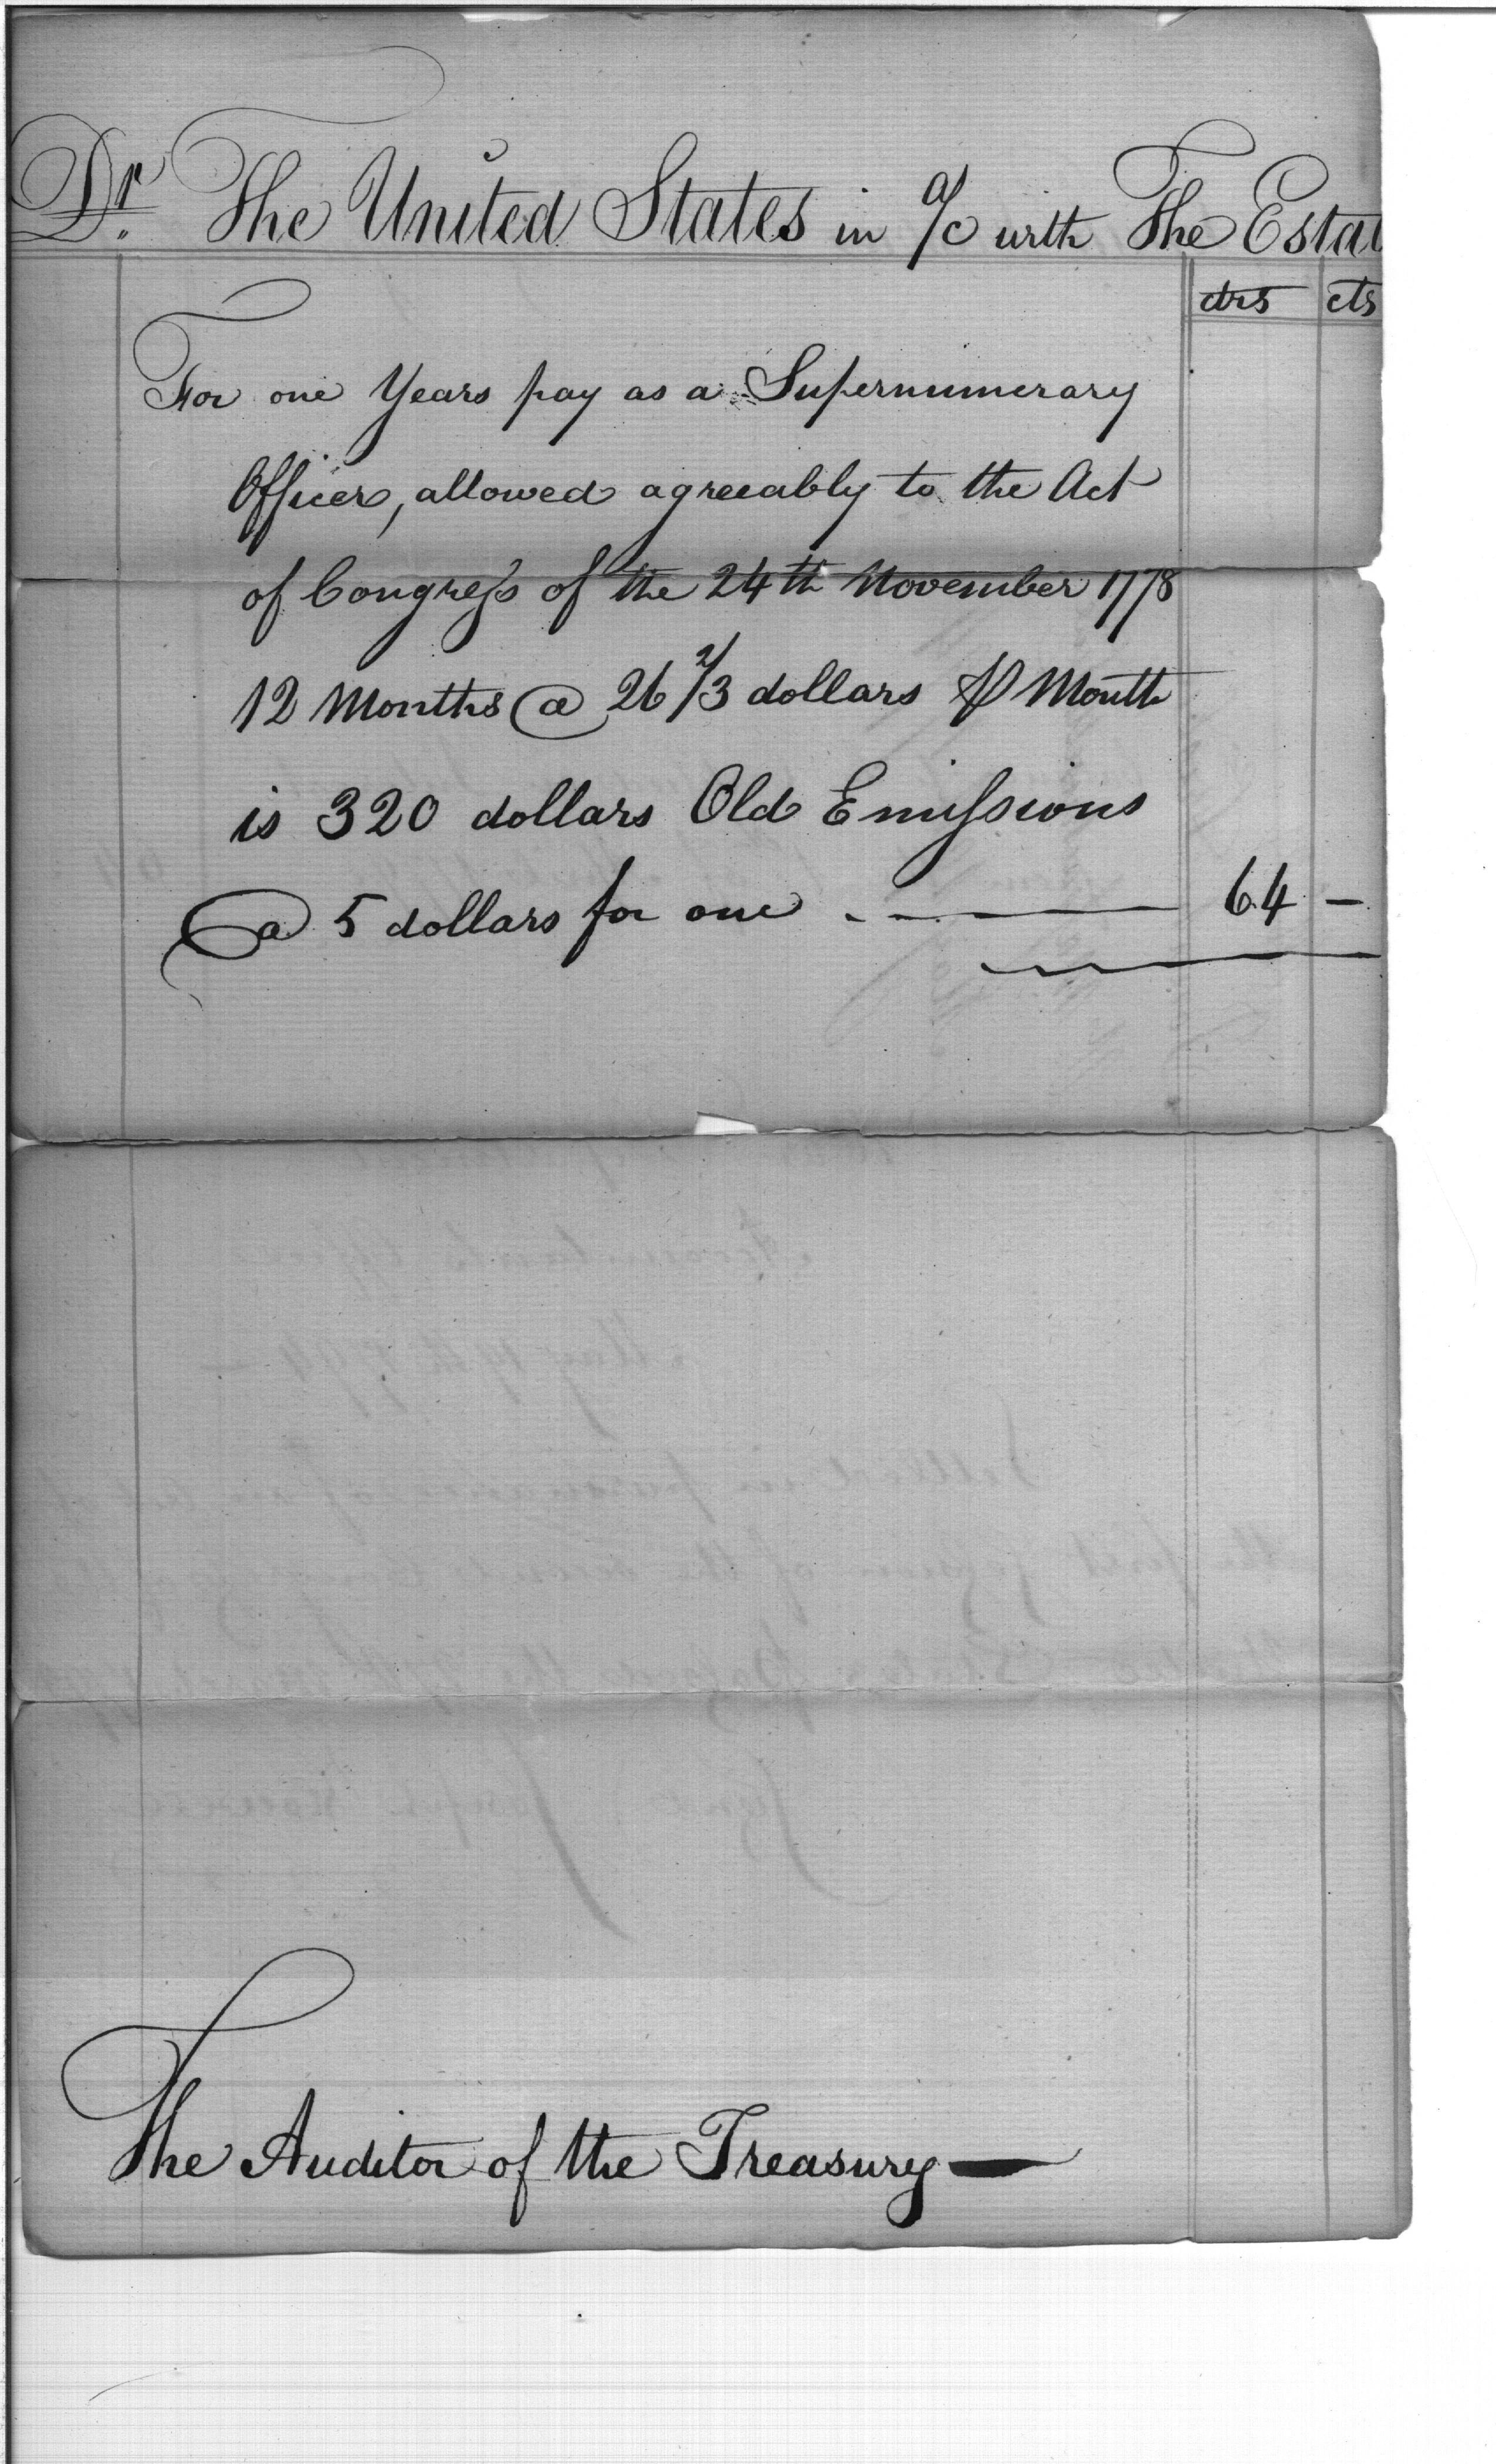 Dr. The United States in a/c with The Esta
drs cts
For one Years pay as a Supernumerary
Officer, allowed agreeably to the Act
of Congress of the 24th November 1778
12 Months @ 26 2/3 dollars ⅌ Month
is 320 dollars Old Emissions
@ 5 dollars for one - - — 64 —
The Auditor of the Treasury —